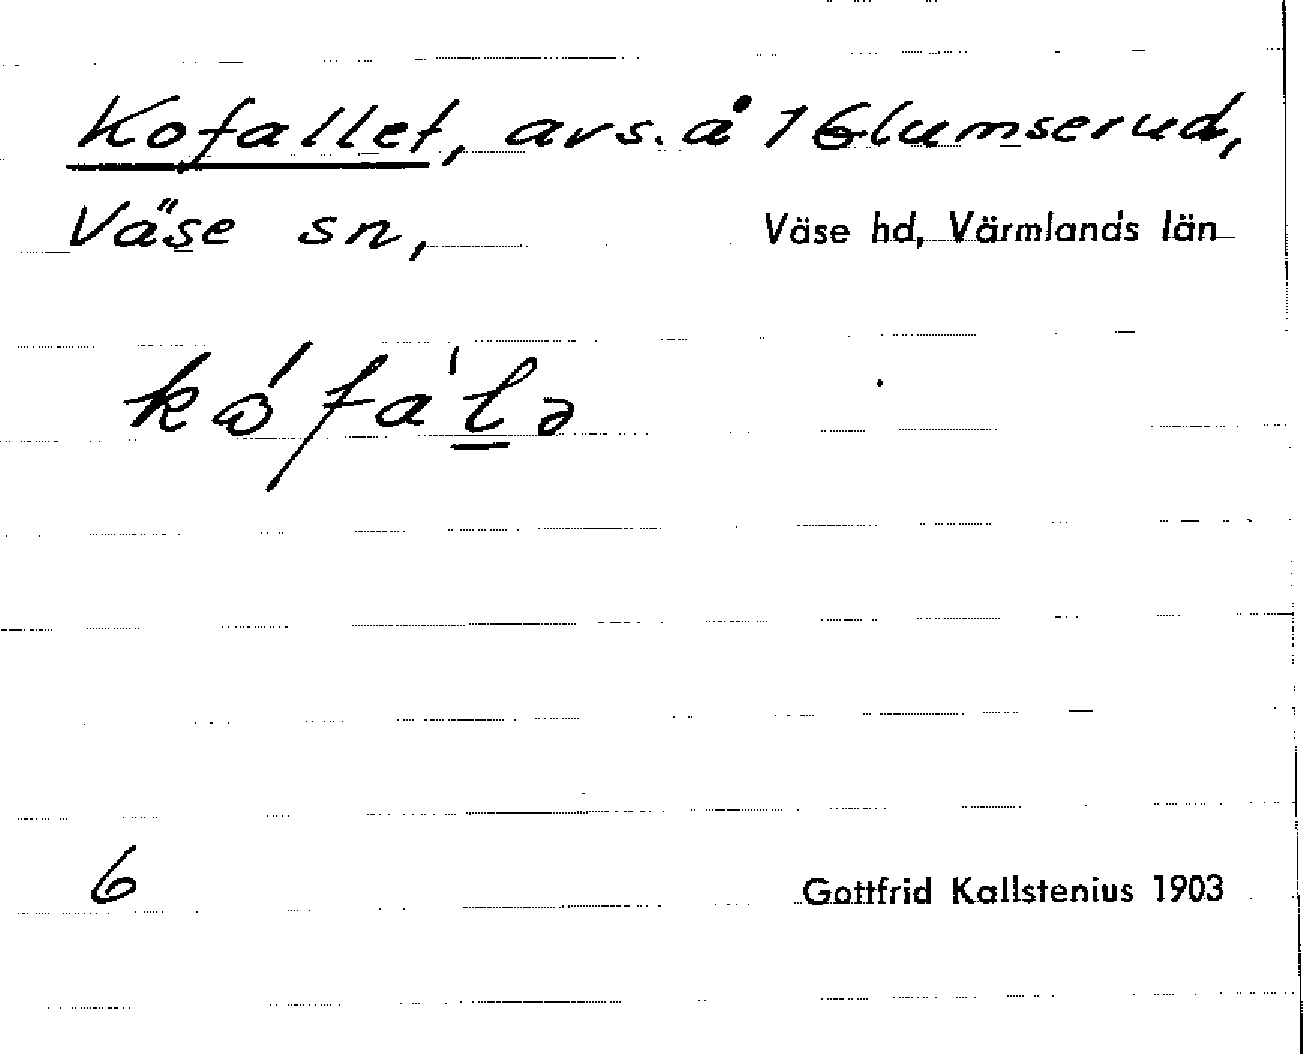 Kofallet, avs. å 1 Glumserud,
Väse sn, Väse hd, Värmlands län
kófa'lə
6 Gottfrid Kallstenius 1903